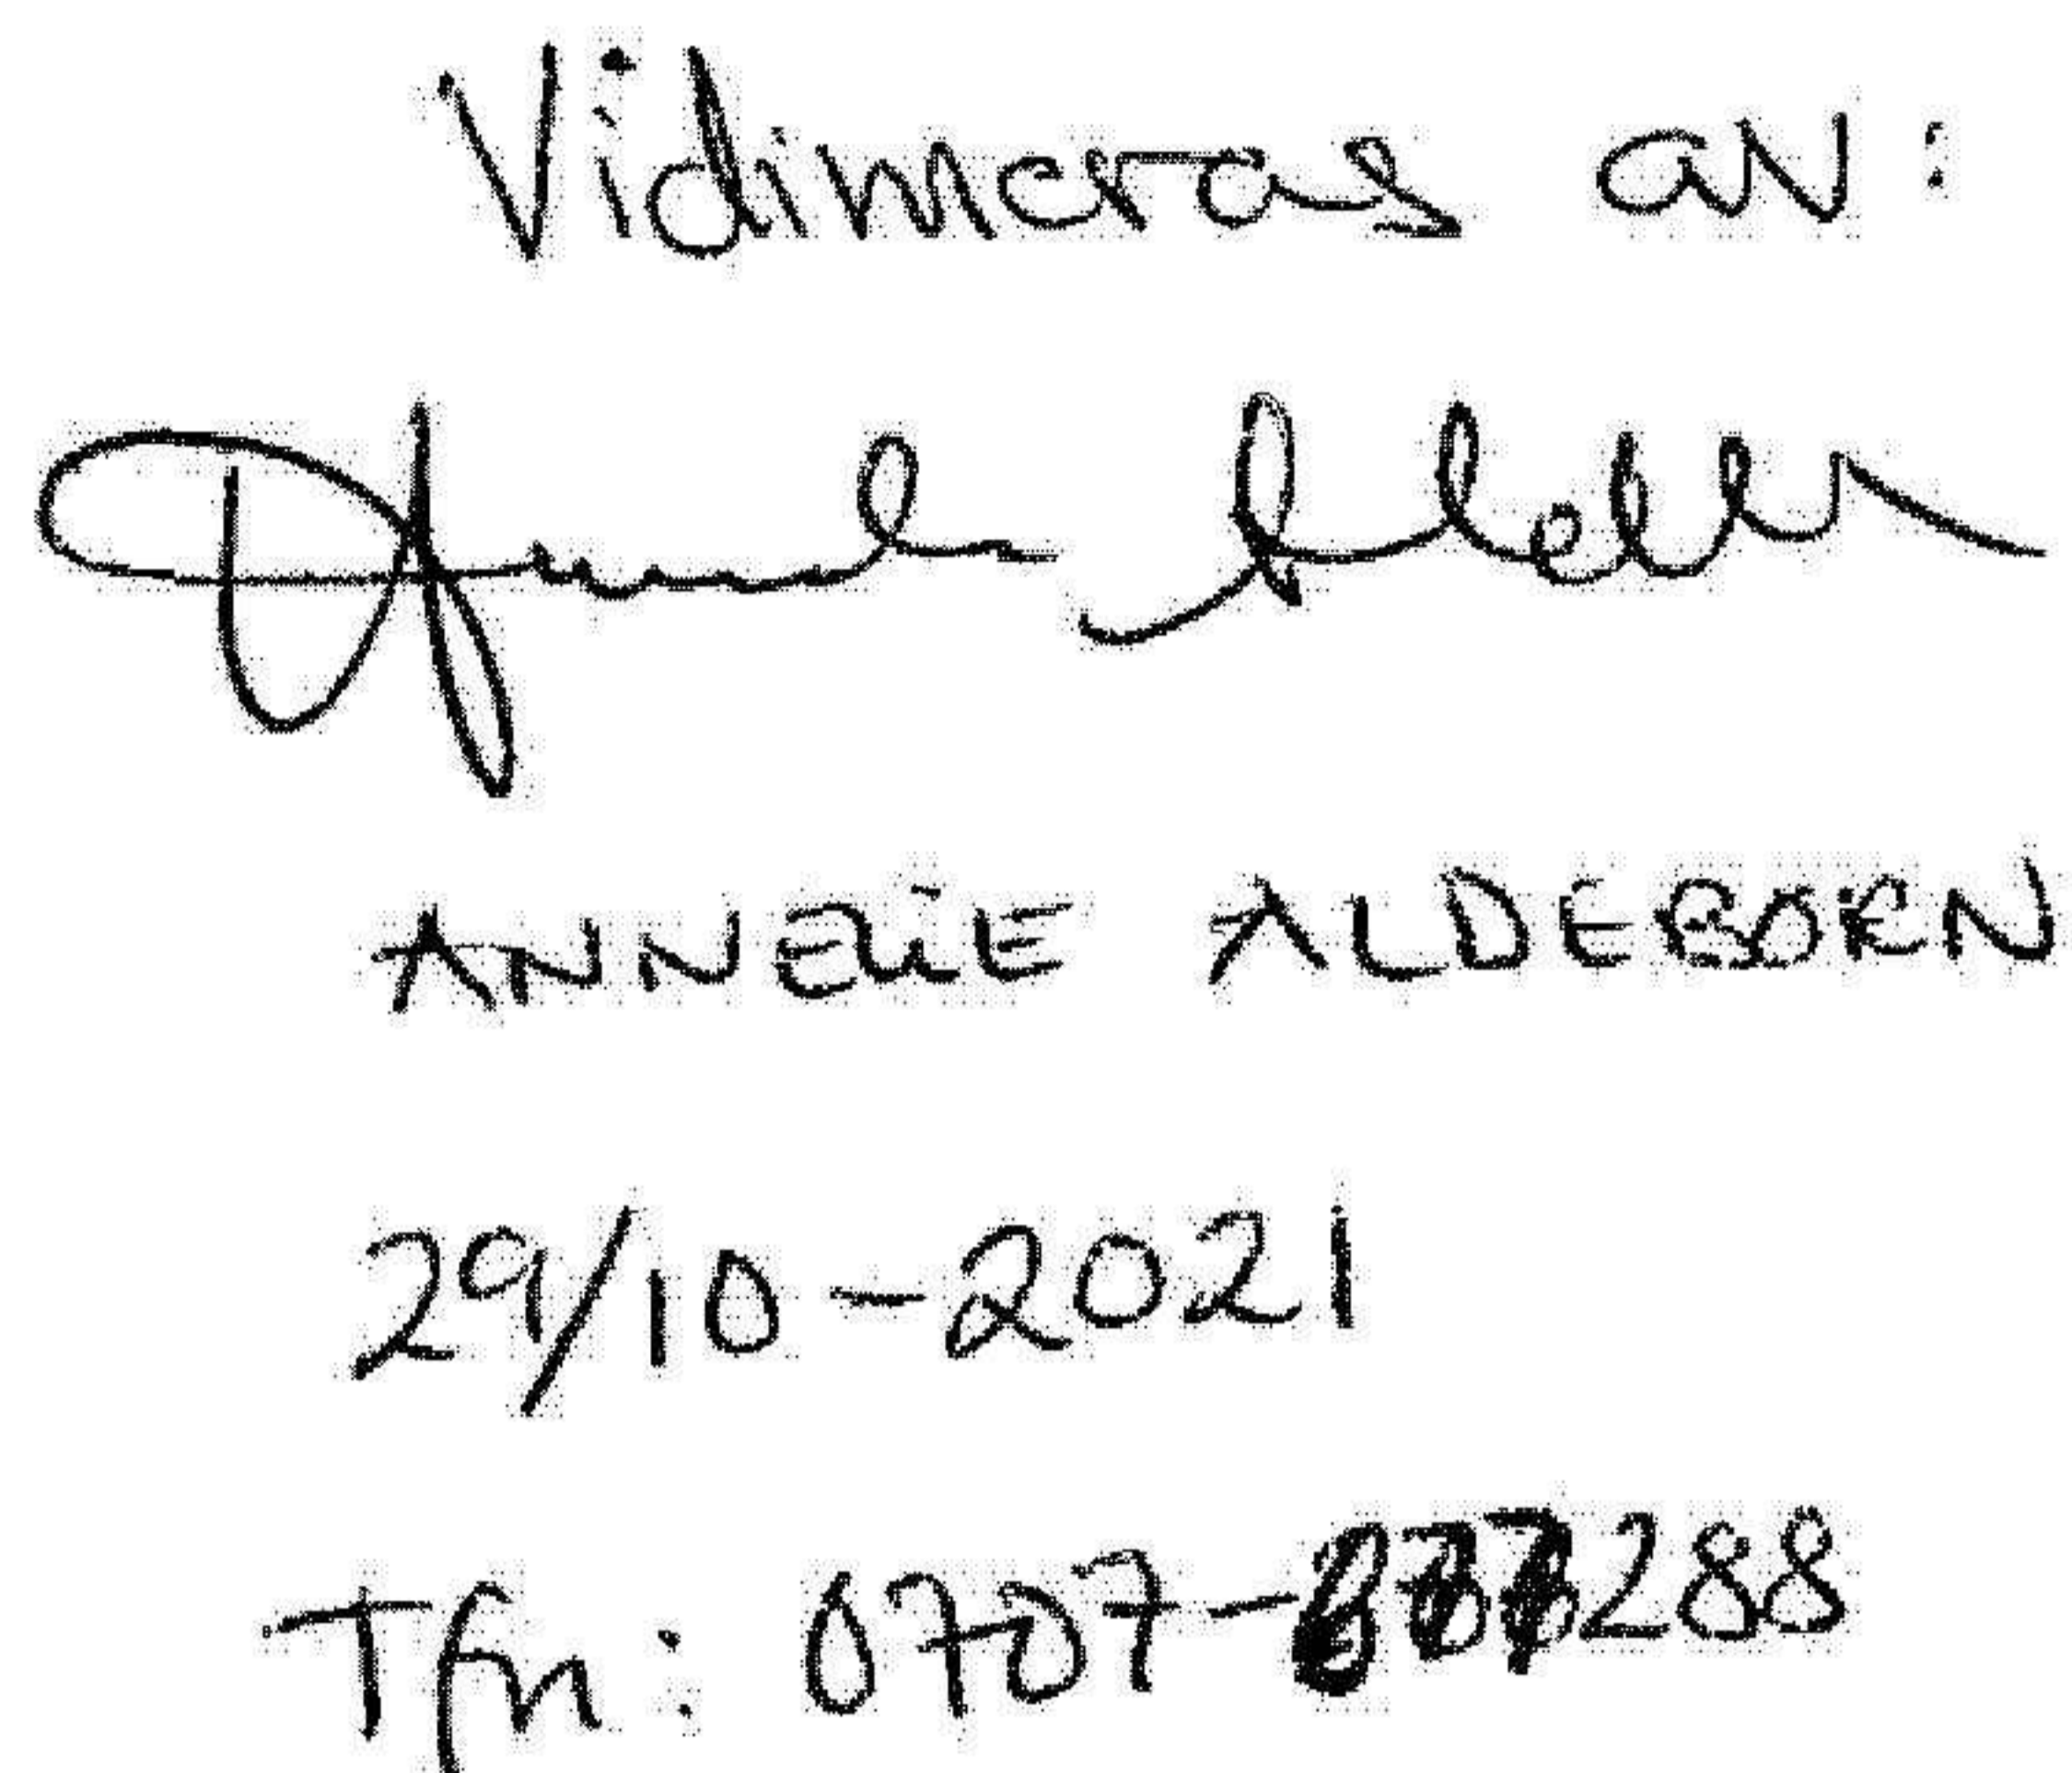 Vidimeras av:
ANNELIE ALDEBORN
29/10-2021
Tfn: 0707-